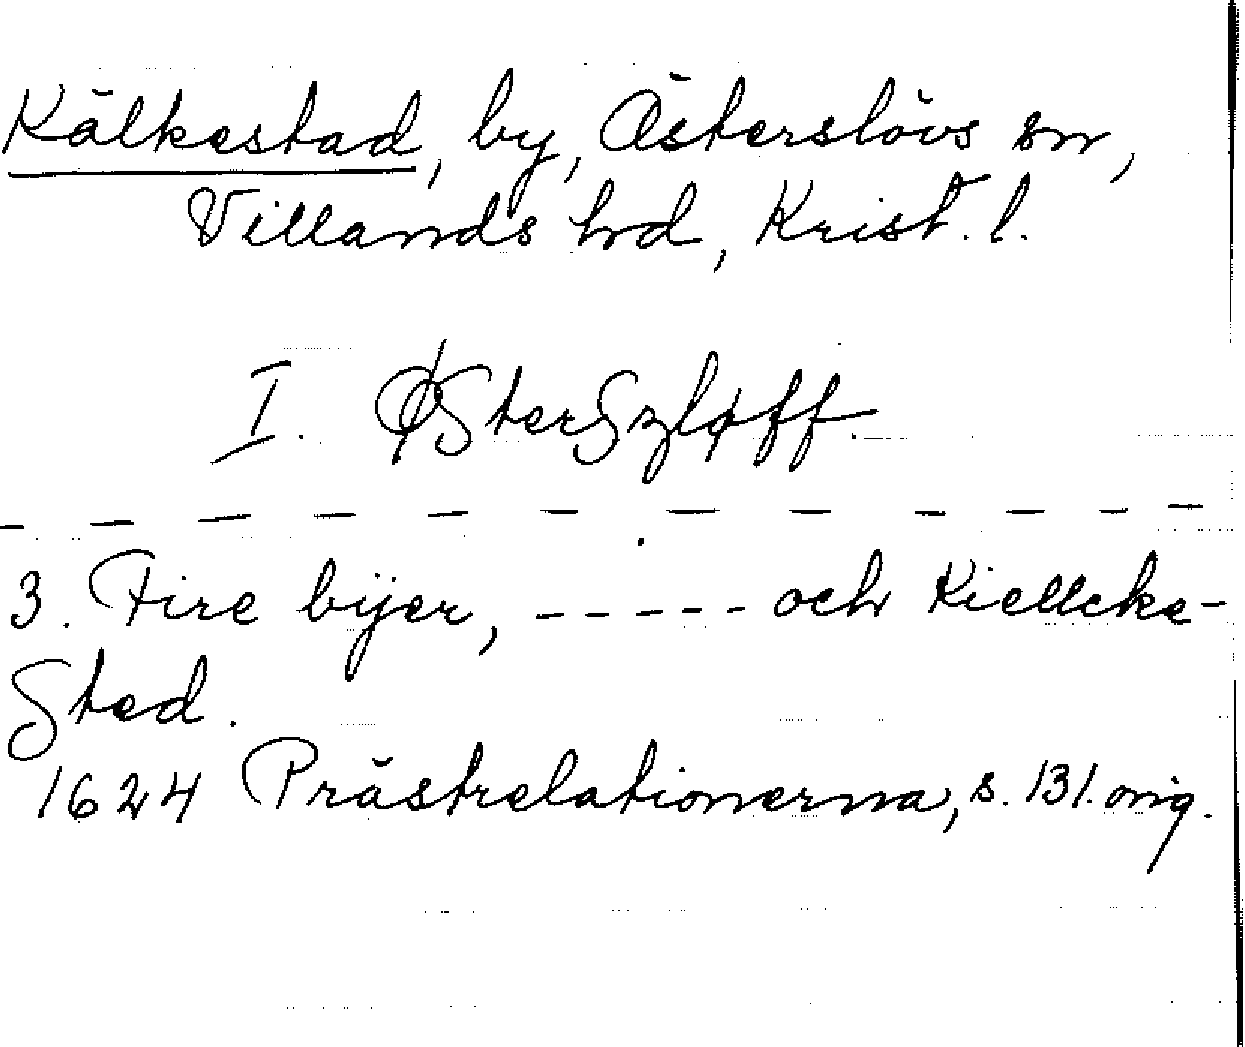 Kälkestad, by, Österslövs sn,
Villands hd, Krist. l.
I. ØSterSzløff.
— — — — — — — — — — —
3. Fire bÿer, ----- och Kiellcke-
Sted.
1624 Prästrelationerna, s. 131. orig.